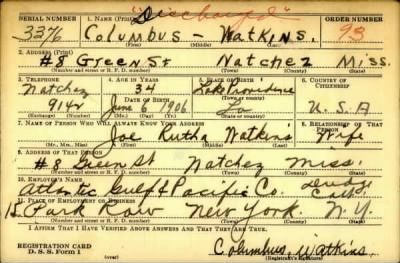 "Discharged"
SERIAL NUMBER 1. NAME (Print) ORDER NUMBER
3376 Columbus - Watkins. 93
(First) (Middle) (Last)
2. ADDRESS (Print)
#8 Green St Natchez Miss.
(Number and street or R. F. D. number) (Town) (County) (State)
3. TELEPHONE 4. AGE IN YEARS 5. PLACE OF BIRTH 6. COUNTRY OF CITIZENSHIP
Natchez 34 Lake Providence
DATE OF BIRTH
914 June 6 1906 La U.S.A
(Exchange) (Number) (Mo.) (Day) (Yr.) (State or country)
7. NAME OF PERSON WHO WILL ALWAYS KNOW YOUR ADDRESS 8. RELATIONSHIP OF THAT PERSON
Joe Rutha Watkins Wife
(Mr., Mrs., Miss) (First) (Middle) (Last)
9. ADDRESS OF THAT PERSON
#8 Green St Natchez Miss.
(Number and street or R. F. D. number) (Town) (County) (State)
10. EMPLOYER'S NAME
Atlantic Gulf & Pacific Co.
11. PLACE OF EMPLOYMENT OR BUSINESS
15 Park Row New York. N.Y.
(Number and street or R. F. D. number) (Town) (County) (State)
I AFFIRM THAT I HAVE VERIFIED ABOVE ANSWERS AND THAT THEY ARE TRUE.
REGISTRATION CARD
D. S. S. Form 1
Columbus, Watkins.
(Registrant's signature)